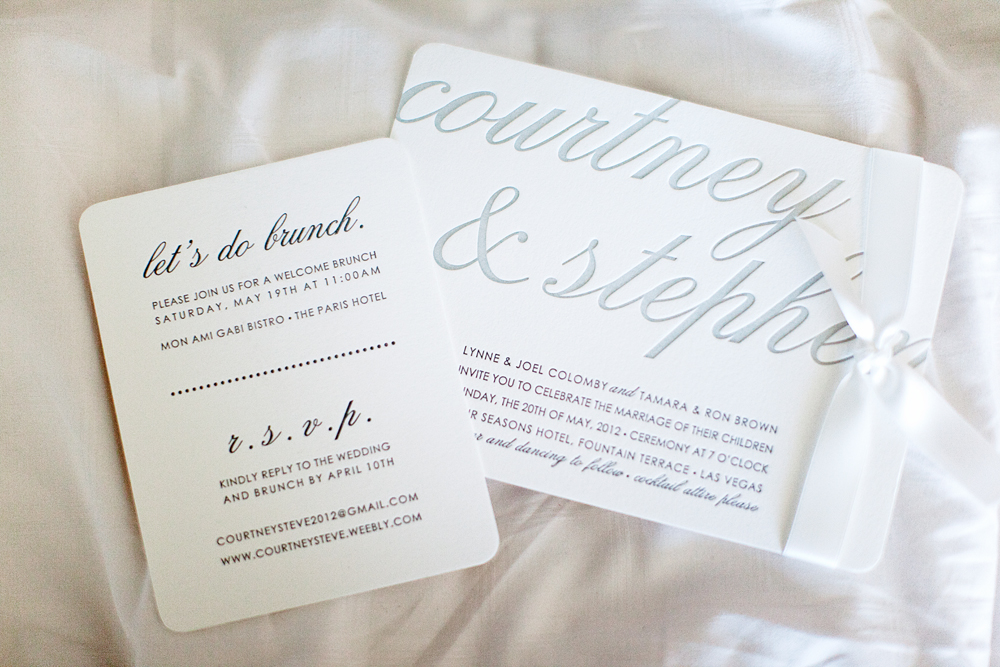 let's do brunch.
PLEASE JOIN US FOR A WELCOME BRUNCH
SATURDAY, MAY 19TH AT 11:00AM
MON AMI GABI BISTRO • THE PARIS HOTEL
r.s.v.p.
KINDLY REPLY TO THE WEDDING
AND BRUNCH BY APRIL 10TH
COURTNEYSTEVE2012@GMAIL.COM
WWW.COURTNEYSTEVE.WEEBLY.COM
courtney
& stephen
LYNNE & JOEL COLOMBY and TAMARA & RON BROWN
INVITE YOU TO CELEBRATE THE MARRIAGE OF THEIR CHILDREN
NDAY, THE 20TH OF MAY, 2012 • CEREMONY AT 7 O'CLOCK
R SEASONS HOTEL, FOUNTAIN TERRACE • LAS VEGAS
and dancing to follow • cocktail attire please